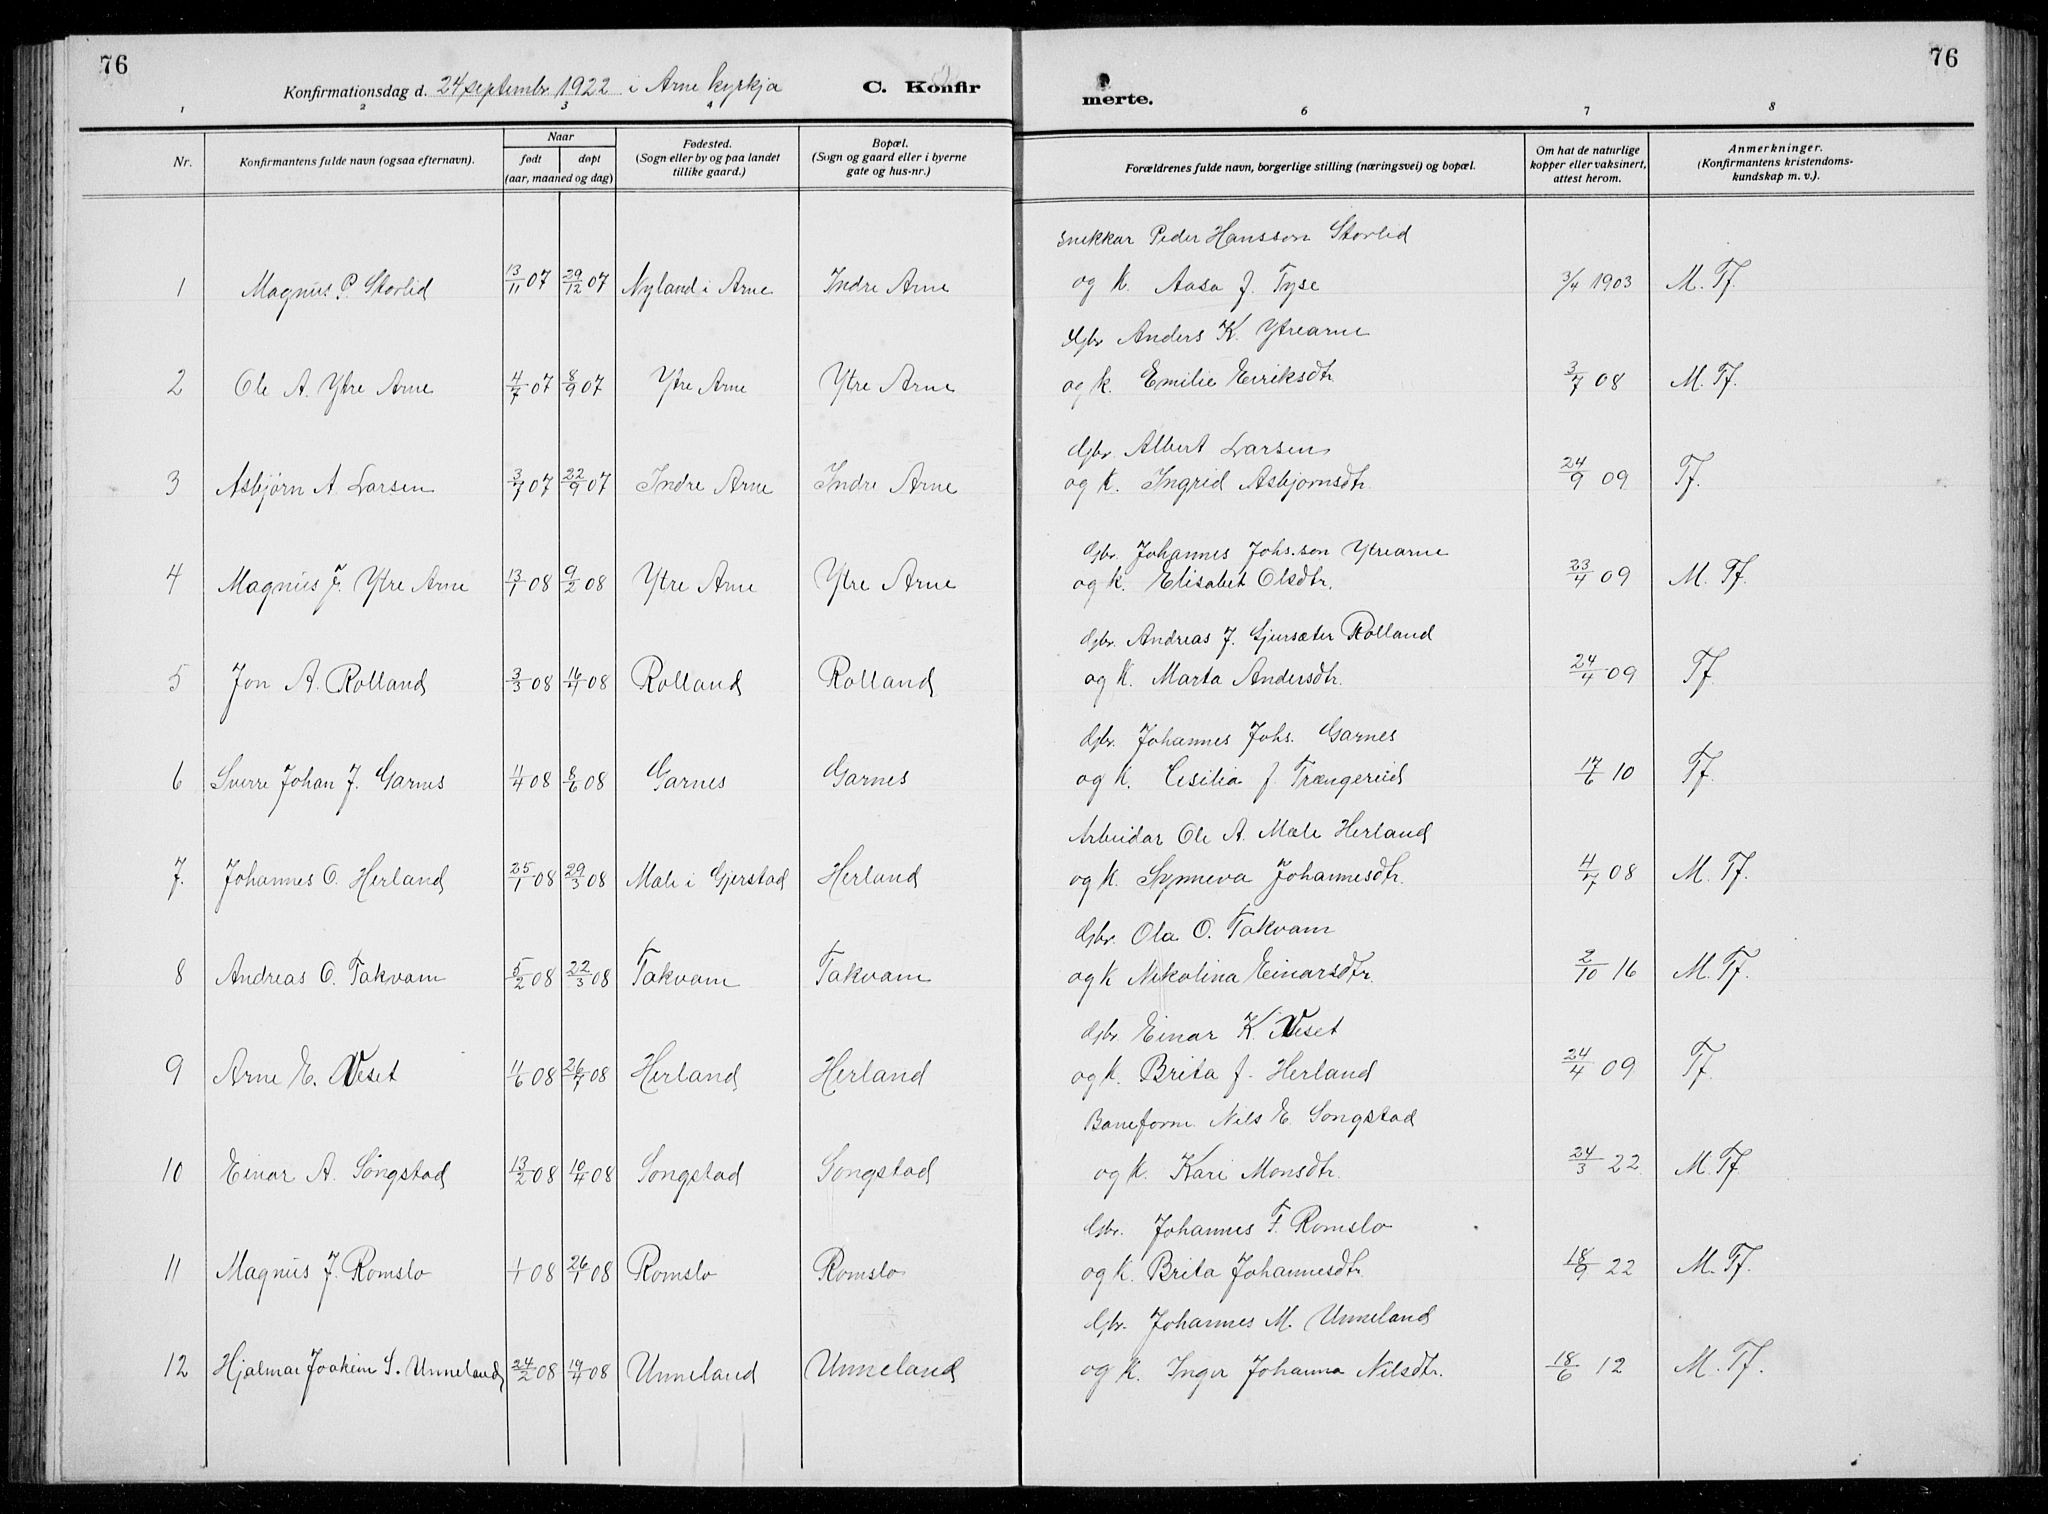 76
76
Konfirmationsdag d. 24 septembr 1922 i Arne kyrkja
C. Konfir
merte.
1 2 3 4 6 7 8
Nr.
Konfirmantens fulde navn (ogsaa efternavn).
Naar
født døpt
(aar, maaned og dag)
Fødested.
(Sogn eller by og paa landet
tillike gaard.)
Bopæl.
(Sogn og gaard eller i byerne
gate og hus-nr.)
Forældrenes fulde navn, borgerlige stilling (næringsvei) og bopæl.
Om hat de naturlige
kopper eller vaksinert,
attest herom.
Anmerkninger.
(Konfirmantens kristendoms-
kundskap m. v.).
snekkar Peder Hansson Storlid
1 Magnus P. Storlid 13/11 07 29/12 07 Nyland i Arne Indre Arne og k. Aasa f. Tyse 3/4 1903 M. Tf.
Gbr Anders K. Ytrearne
2 Ole A. Ytre Arne 4/7 07 8/9 07 Ytre Arne Ytre Arne og k. Emilie Eiriksdtr 3/7 08 M. Tf.
Gbr. Albert Larsen
3 Asbjørn A. Larsen 3/7 07 22/9 07 Indre Arne Indre Arne og k. Ingrid Asbjørnsdtr. 24/9 09 Tf.
Gbr. Johannes Johs.son Ytrearne
4 Magnus J. Ytre Arne 13/1 08 9/2 08 Ytre Arne Ytre Arne og k. Elisabet Olsdtr. 23/4 09 M. Tf.
Gbr. Andreas J. Gjersæter Rolland
5 Jon A. Rolland 3/3 08 16/4 08 Rolland Rolland og k. Marta Andersdtr. 24/4 09 Tf.
Gbr. Johannes Johs. Garnes
6 Sverre Johan J. Garnes 4/4 08 8/6 08 Garnes Garnes og k. Cesilia f. Trængereid 17/6 10 Tf.
Arbeidar Ole A. Mæle Herland
7. Johannes O. Herland 25/1 08 29/3 08 Mæle i Gjerstad Herland og k. Synneva Johannesdtr. 4/7 08 M. Tf.
Gbr. Ola O. Takvam
8 Andreas O. Takvam 5/2 08 22/3 08 Takvam Takvam og k Nikolina Einarsdtr. 2/10 16 M. Tf.
Gbr. Einar K. Veset
9 Arne E. Veset 4/6 08 26/7 08 Herland Herland og k. Brita f. Herland 24/4 09 Tf.
Baneform. Nils E. Songstad
10 Einar A. Songstad 13/2 08 10/4 08 Songstad Songstad og k. Kari Monsdtr. 24/3 22 M. Tf.
Gbr. Johannes F. Romslo
11 Magnus J. Romslo 1/1 08 26/1 08 Romslo Romslo og k. Brita Johannesdtr. 18/9 22 M. Tf.
Gbr. Johannes M. Unneland
12 Hjalmar Joakim S. Unneland 24/2 08 19/4 08 Unneland Unneland og k. Inger Johanna Nilsdtr. 18/6 12 M. Tf.